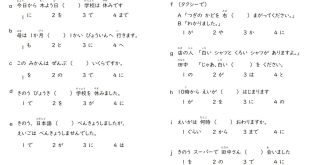 a 今日から 木よう日（　）学校は 休みです
1 に 2 が 3 で 4 まで
b 母は 1か月（　）1かい びょういんへ 行きます。
1 も 2 と 3 に 4 へ
c この みかんは ぜんぶ（　）いくらですか。
d きのう びょうき（　）学校を 休みました。
1 で 2 が 3 に 4 を
e きのう、日本語（　）べんきょうしましたが、
えいごは べんきょうしませんでした。
f （タクシーで）
A「つぎの かどを 右（　）まがってください。」
B「わかりました。」
1 が 2 や 3 か 4 に
g 山の人「白い シャツと くろい シャツが ありますよ。」
田中「じゃあ、白い（　）を ください。」
1 が 2 か 3 の 4 に
h 10時から えいが（　）はじまります
1 が 2 か 3 に 4 の
i えいがは 何時（　）おわりますか。
1 ぐらい 2 から 3 に 4 まで
j きのう スーパーで 田中さん（　）会いました
1 に 2 が 3 を 4 で